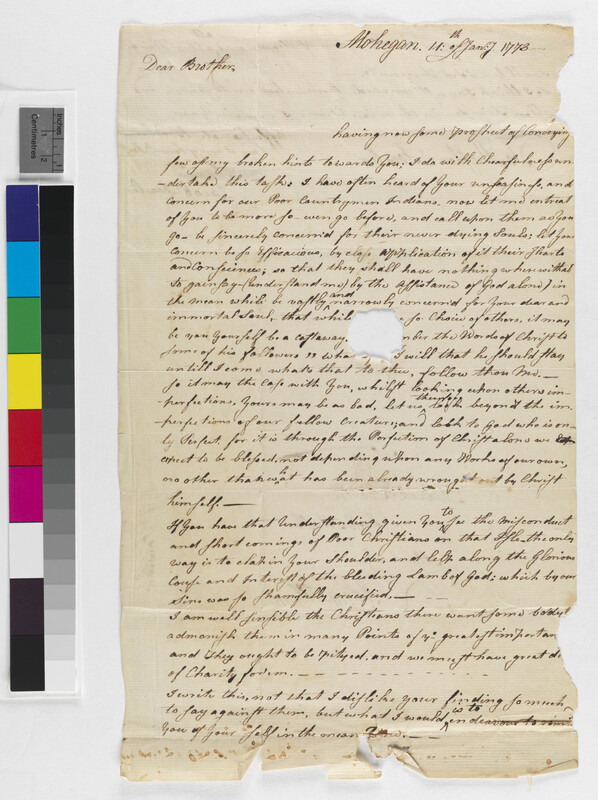 Mohegan. 11th of Jany 1773
Dear Brother,
having now some prospect of Conveying
few of my broken hints towards You; I do with Chearfulness un-
-dertake this task: I have often heard of Your uneasiness, and
Concern for our Poor Countrymen Indians. now let me entreat
of You to be more so - even go before, and call upon them as You
go - be sincerely concern'd for their never dying Souls; let Your
Concern be so Efficacious, by close application of it their Hearts
and Consciences; so that they shall have nothing where withal
to gainsay (understand me) by the assistance of God alone) in
the mean while be vastly and narrowly concern'd for Your dear and
immortal Soul, that whil so Choice of others, it may
be you Yourself be a castaway. mber the Words of Christ to
some of his followers " what I will that he should stay
untill I come whats that to thee, follow thou Me. —
so it may the Case with You, whilst looking upon others im-
perfections, Yours may be as bad, let us therefore look beyond the im-
perfections of our fellow Creatures, and look to God who is on-
ly Perfect. for it is through the Perfection of Christ alone we
expect to be blessed, not depending upon any Works of our own,
no other than what has been already wrought out by Christ
himself. —
If You have that Understanding given You to see the Misconduct
and short comings of Poor Christians on that Isle - the only
way is to clap in Your Shoulder, and help along the Glorious
Cause and Interest of the bleeding Lamb of God; which by our
Sins was so shamefully crucified. —
I am well sensible the Christians there want some body
admonish them in many Points of ye greatest importan
and They ought to be Pityed. and we must have great de
of Charity for em. —
I write this, not that I dislike your finding so much
to say against them, but what I would is to endeavour to
You of Your self in the mean Time. —